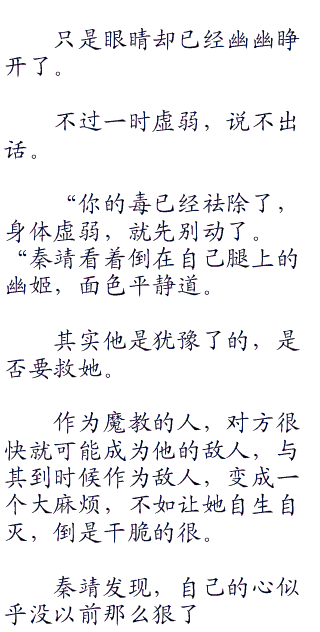 只是眼睛却已经幽幽睁
开了。
不过一时虚弱，说不出
话。
“你的毒已经祛除了，
身体虚弱，就先别动了。
“秦靖看着倒在自己腿上的
幽姬，面色平静道。
其实他是犹豫了的，是
否要救她。
作为魔教的人，对方很
快就可能成为他的敌人，与
其到时候作为敌人，变成一
个大麻烦，不如让她自生自
灭，倒是干脆的很。
秦靖发现，自己的心似
乎没以前那么狠了